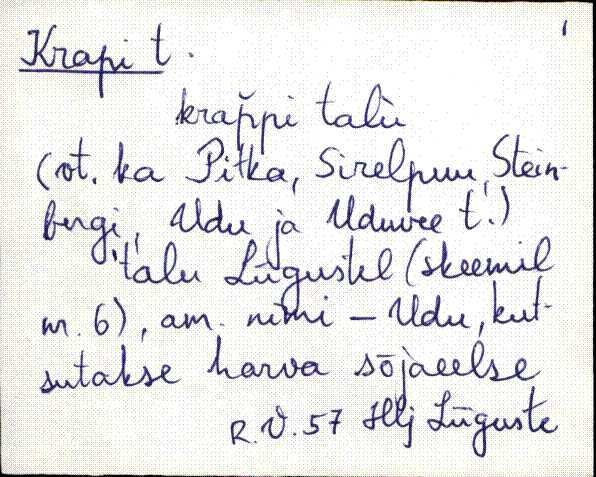 1
Krapi t.
krap̆pi talù
(vt. ka Pitka, Sirelpuu, Stein-
bergi, Udu ja Uduvee t.)
'talu Lūgustel (skeemil
nr. 6), am. nimi – Udu, kut-
sutakse harva sõjaeelse
R.V. 57 Hlj Lūguste